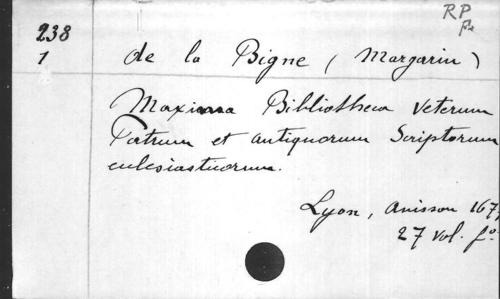 RP
fe
238
1
de la Bigne (Margarin)
Maxima Bibliotheca Veterum
Patrum et antiquorum Scriptorum
eclesiasticorum.
Lyon, Anisson 167
27 vol. fo.